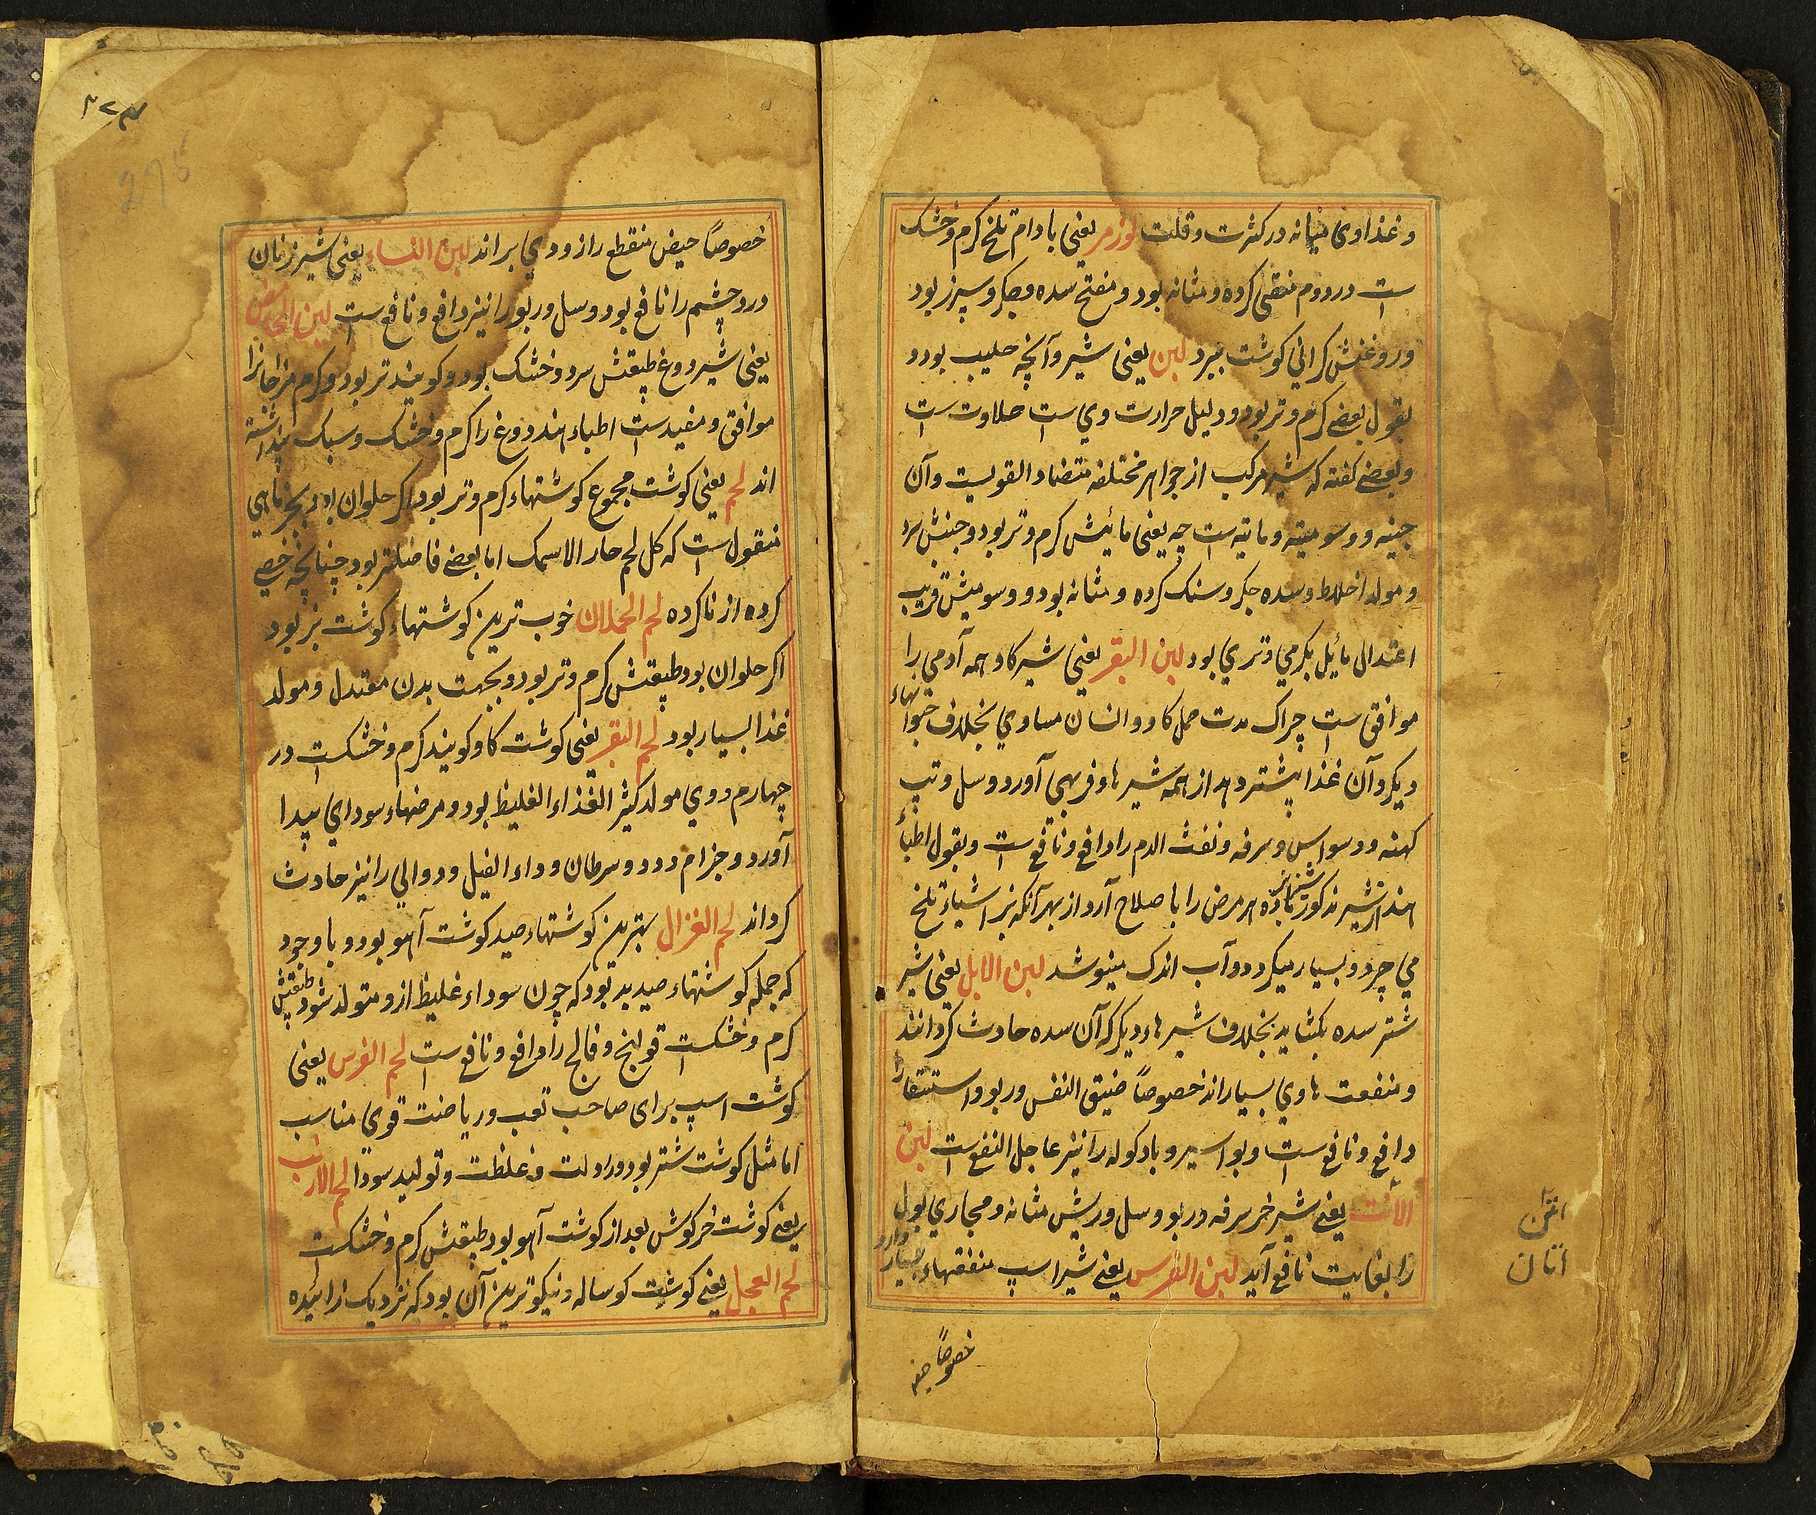 و غذاوی میانه در کثرت و قلت لوز مر یعنی بادام تلخ کرم و خشک
ست در دوم منقی کرده و مثانه بود و مفتح سده و جکر و سپرز بود
و روغنش کرانی کوشت ببرد لبن یعنی شیر و آنچه حلیب بود و
بقول بعضے کرم و تر بود و دلیل حرارت وی است حلاوت است
و بعضے کفته که شیر مرکب از جواهر مختلفه متضاد القویست و آن
جبنیه و دسومیته و مائیته ست چه یعنی مائیتش کرم و تر بود و جبنش سرد
و مولد اخلاط و سده جکر و سنک کرده و مثانه بود و دسومیتش قریب
اعتدال مائل بکرمي و تري بود لبن البقر یعنی شیر کاو همه آدمي را
موافق ست چراک مدت حمل کاو و انسان مساوي بخلاف حیوانهاء
دیکر و آن غذا بیشتر دهد از همه شیرها و فربهي آورد و سل و تپ
کهنه و وسواس و سرفه و نفث الدم را دافع و نافع ست و بقول اطباء
هند از شیر مذکور هر مرض را باصلاح آرد از بهر آنکه بز اشیاء تلخ
مي چرد و بسیار میکردد و آب اندک مینوشد لبن الابل یعنی شیر
شتر سده بکشاید بخلاف شیرهاء دیکر که آن سده حادث کردانند
و منفعت هاوي بسیار اند خصوصاً ضیق النفس و ربو و استسقا را
دافع و نافع ست و بواسیر و باد کوله را نیز عاجل النفع ست لبن
الاتن یعنے شیر خر سرفه و ربو و سل و ریش مثانه و مجاري بول
را بغایت نافع آید لبن الفرس یعنے شیر اسپ منفعتهاء بسیار دارد
خصوصاً حیض
اتن
اتان
۲۷۴
275
خصوصاً حیض منقطع را زود دي براند لبن النساء یعنی شیر زنان
درد چشم را نافع بود و سل و ربو را نیز دافع و نافع ست لبن الحامض
یعنی شیر دوغ طبیعتش سرد و خشک بود و کویند تر بود و کرم مزاجانرا
موافق و مفید ست اطباء هند دوغ را کرم و خشک و سبک پنداشته
اند لحم یعنی کوشت مجموع کوشتهاء کرم و تر بود اکر حلوان بود بجز ماهي
منقول ست که کل لحم حار الا سمک اما بعضے فاضلتر بود چنانچه خصے
کرده از ناکرده لحم الحملان خوب ترین کوشتهاء کوشت بز بود
اکر حلوان بود طبیعتش کرم و تر بود و بجهت بدن معتدل و مولد
غذا بسیار بود لحم البقر یعنی کوشت کاو کویند کرم و خشکست در
چهارم و وي مولد کثیر الغذاء الغلیظ بود و مرضهاء سوداي پیدا
آورد و جزام و درد و سرطان و داء الفیل و دوالي را نیز حادث
کرداند لحم الغزال بهترین کوشتهاء صید کوشت آهو بود و باوجود
که جمله کوشتهاء صید بد بود که چون سوداء غلیظ ازو متولد شود طبیعتش
کرم و خشکست قولنج و فالج را دافع و نافع ست لحم الفرس یعنی
کوشت اسپ برای صاحب تعب و ریاضت قوی مناسب
اما مثل کوشت شتر بود و غلظت و تولید سودا لحم الارنب
یعنی کوشت خرکوش بعد از کوشت آهو بود طبیعتش کرم و خشکست
لحم العجل یعنے کوشت کوساله و نیکوترین آن بود که نزدیک زائیده